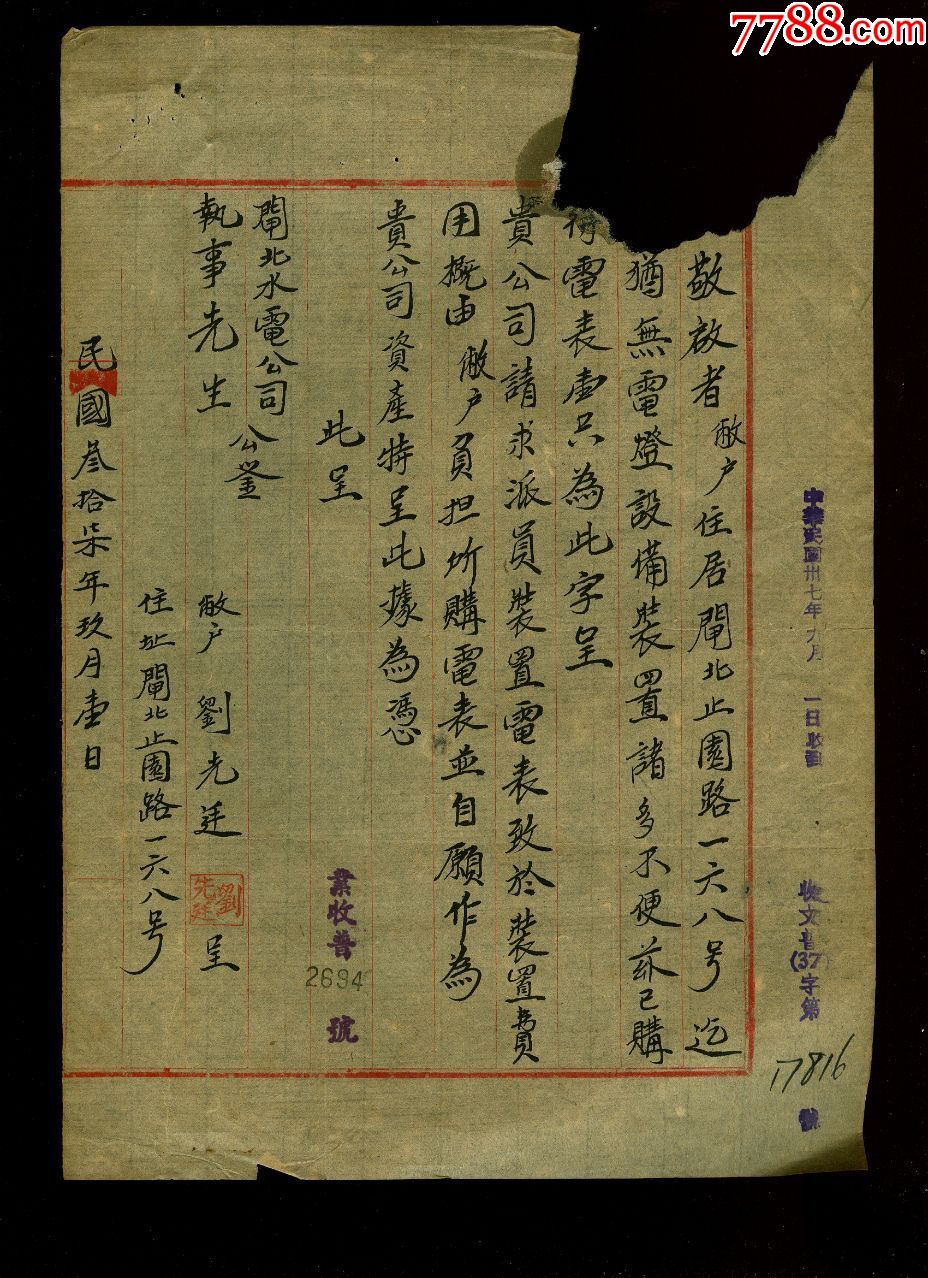 7788.com
敬啟者敝户住居閘北止園路一六八号迄
猶無電燈設備裝置諸多不便茲已購
得電表壹只為此字呈
貴公司請求派員裝置電表致於裝置費
用概由敝户負担所購電表並自願作為
貴公司資產特呈此據為憑
此呈
閘北水電公司
執事先生公鉴
敝户劉先廷呈
住址閘北止園路一六八号
民國叁拾柒年玖月壹日
劉先廷
業收普2694號
中華民國卅七年九月一日收到
收文普(37)字第17816號